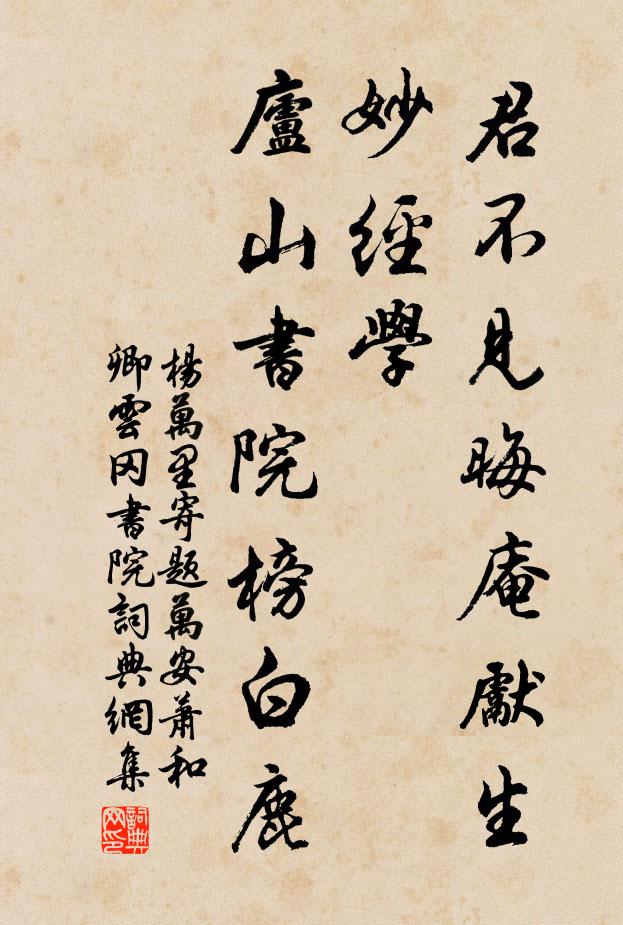 君不見晦庵獻生
妙經學
廬山書院榜白鹿
楊萬里寄題萬安蕭和
卿雲冈書院詞典網集
詞典
网印